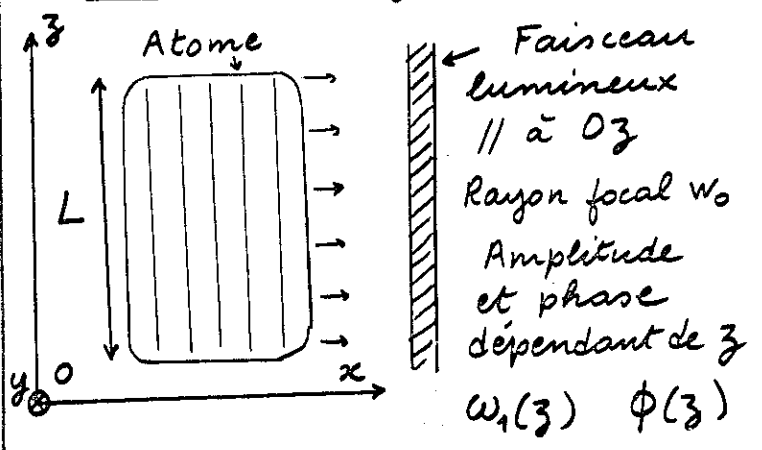 z
Atome
L
y O x
Faisceau
lumineux
// à Oz
Rayon focal w₀
Amplitude
et phase
dépendant de z
ω₁(z) ϕ(z)